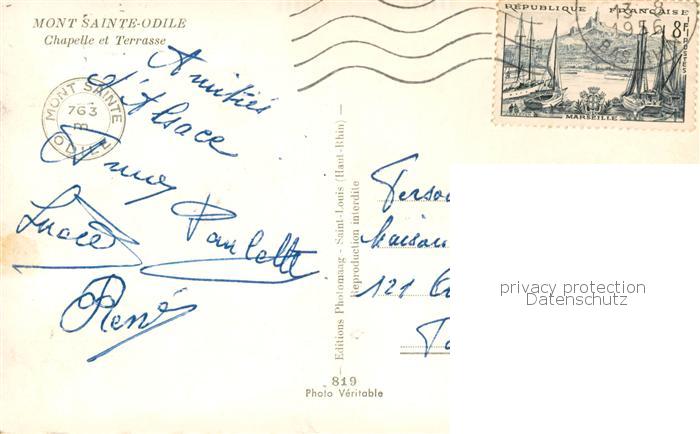 MONT SAINTE-ODILE
Chapelle et Terrasse
Amitiés
d'Alsace
Paulette
Lucie
René
MONT SAINTE
763
ODILE
RÉPUBLIQUE FRANÇAISE
8F
POSTES
13-8
1956
MARSEILLE
Editions Photomaag - Saint-Louis (Haut-Rhin)
Reproduction interdite
Maison
121
819
Photo Véritable
privacy protection
Datenschutz